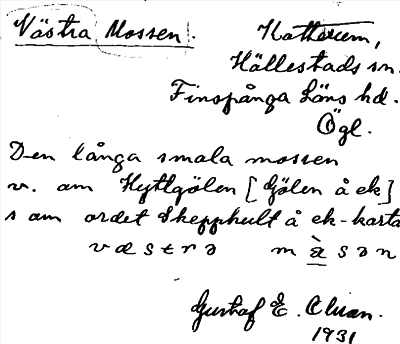 Västra Mossen.
Hattorum,
Hällestads sn.
Finspånga Läns hd.
Ögl.
Den långa smala mossen
v. om Hyttgölen [Gölen å ek]
s om ordet Skepphult å ek-karta
västrə m à s ə n
Gustaf E.
1931